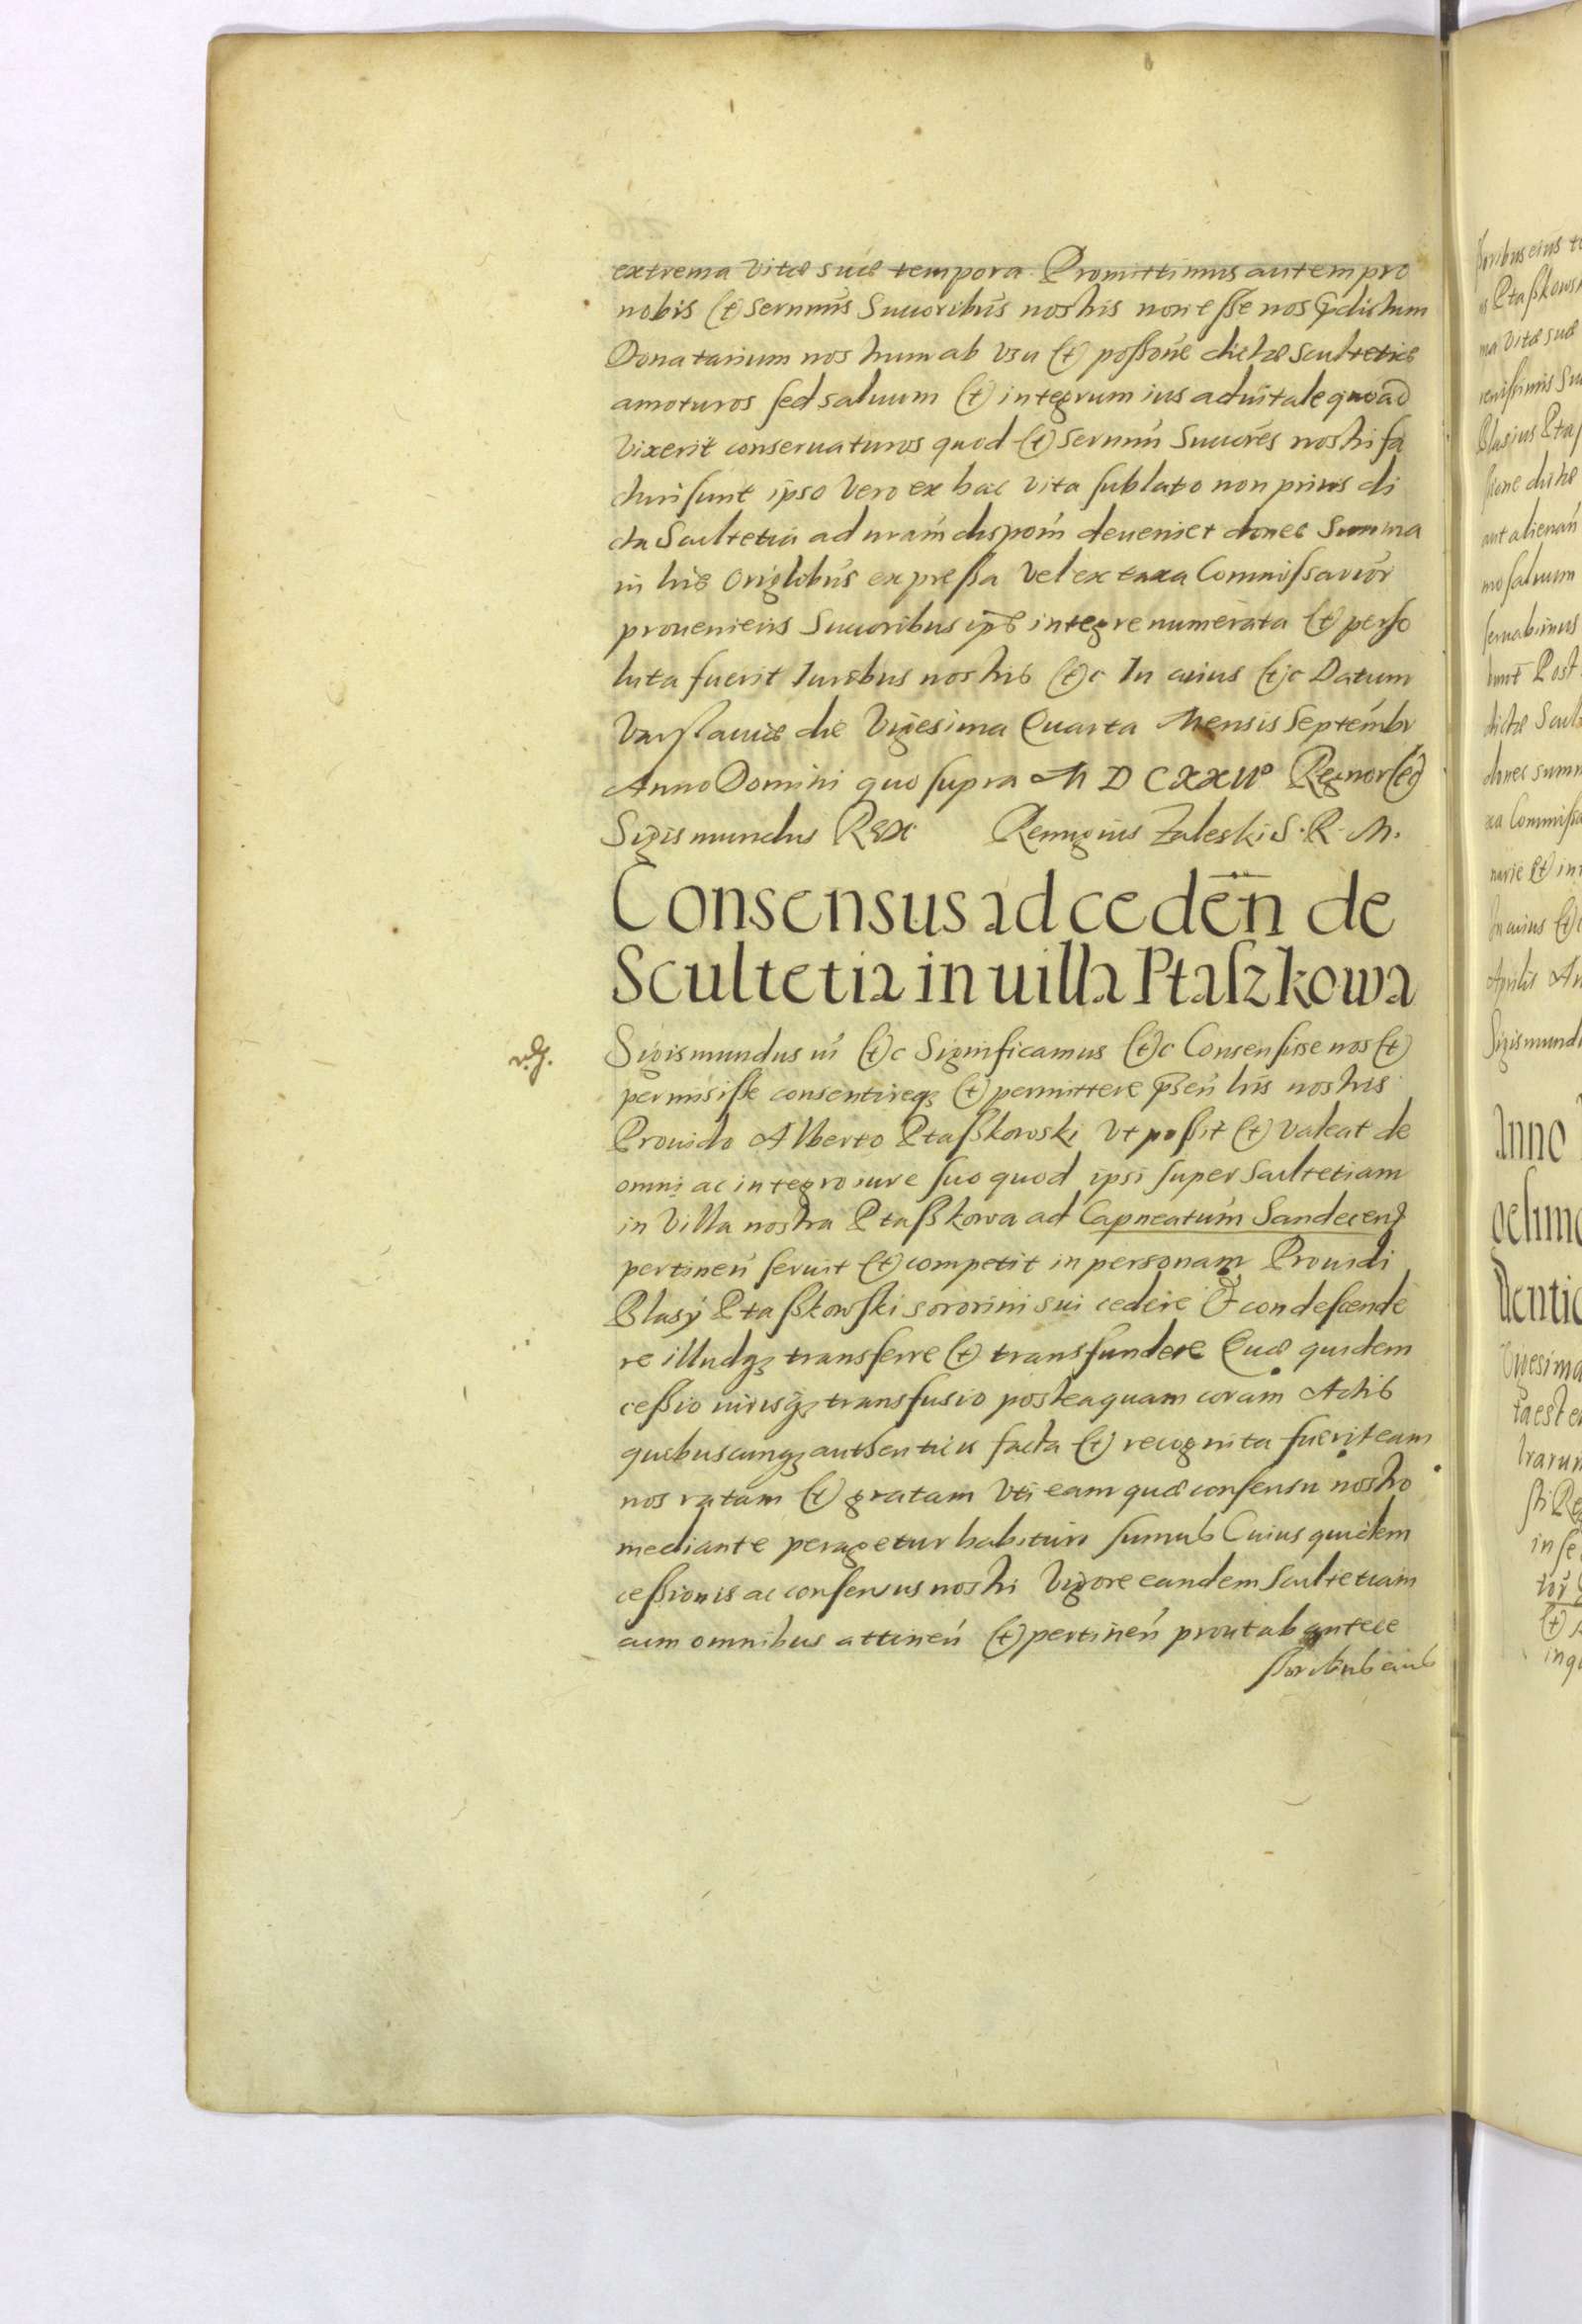 extrema Vitæ suæ tempora Promittimus autem pro
nobis (et) Sernmis Succoribus nostris non esse nos p̃dictum
Donatarium nostrum ab Vsu (et) possone dictæ Scultetiæ
amoturos sed saluum (et) integrum ius aduitale quoad
Vixerit conseruaturos quod (et) Sernmi Succores nostri fa
cturi sunt ipso Vero ex hac Vita sublato non prius di
cta Scultetia ad nram dispom deueniet donec Summa
in his Origlibus expressa Vel ex taxa Commissarior
proueniens Succoribus ips integre numerata (et) perso
luta fuerit Iuribus nostris (et)c In cuius (et)c Datum
Varssauiæ die Vigesima Quarta Mensis Septembr
Anno Domini quo supra M D C XX IIº Regnor (et)
Sigismundus Rex Remigius Zaleski S. R. M.
Consensus ad ceden de
Scultetia in uilla Ptaszkowa
Sigismundus iii (et)c Significamus (et)c Consensisse nos (et)
permisisse consentireq₃ (et) permittere p̃sen lris nostris
Prouido Alberto Ptaßkowski Vt possit (et) Valeat de
omni ac integro iure suo quod ipsi super Scultetiam
in Villa nostra Ptaßkowa ad Capneatum Sandecens
pertinen seruit (et) competit in personam Prouidi
Blasÿ Ptaßkowski sororini sui cedere & condescende
re illudq₃ transferre (et) transfundere Quæ quidem
cessio iurisq₃ transfusio posteaquam coram Actis
quibuscunq₃ authenticis facta (et) recognita fuerit eam
nos ratam (et) gratam Vti eam quæ consensu nostro
mediante peragetur habituri sumus Cuius quidem
cessionis ac consensus nostri Vigore eandem Scultetiam
cum omnibus attinen (et) pertinen prout ab antece
ssoribus eius
ssoribus eius
Ptaßkows
ma Vitæ suæ
Blasius Ptaß
ssione dictæ
aut alienan
mo saluum
seruabimus
Post
dictæ Scul
donec summ
xa Commissa
In cuius (et)
Aprilis An
Sigismund
Anno
Vigesima